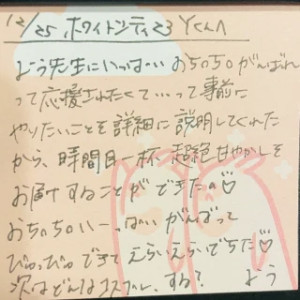 12/25 ホワイトシティ23 Yくん
よう先生にいっぱいおちちちがんばれ
って応援されたくて…って事前に
やりたいことを詳細に説明してくれた
から、時間目一杯超絶甘やかしを
お届けすることができたの♡
おちちちいーっぱいがんばって
びゅっびゅできてえらいえらいでちた♡
次はどんなコスプレ、する? よう